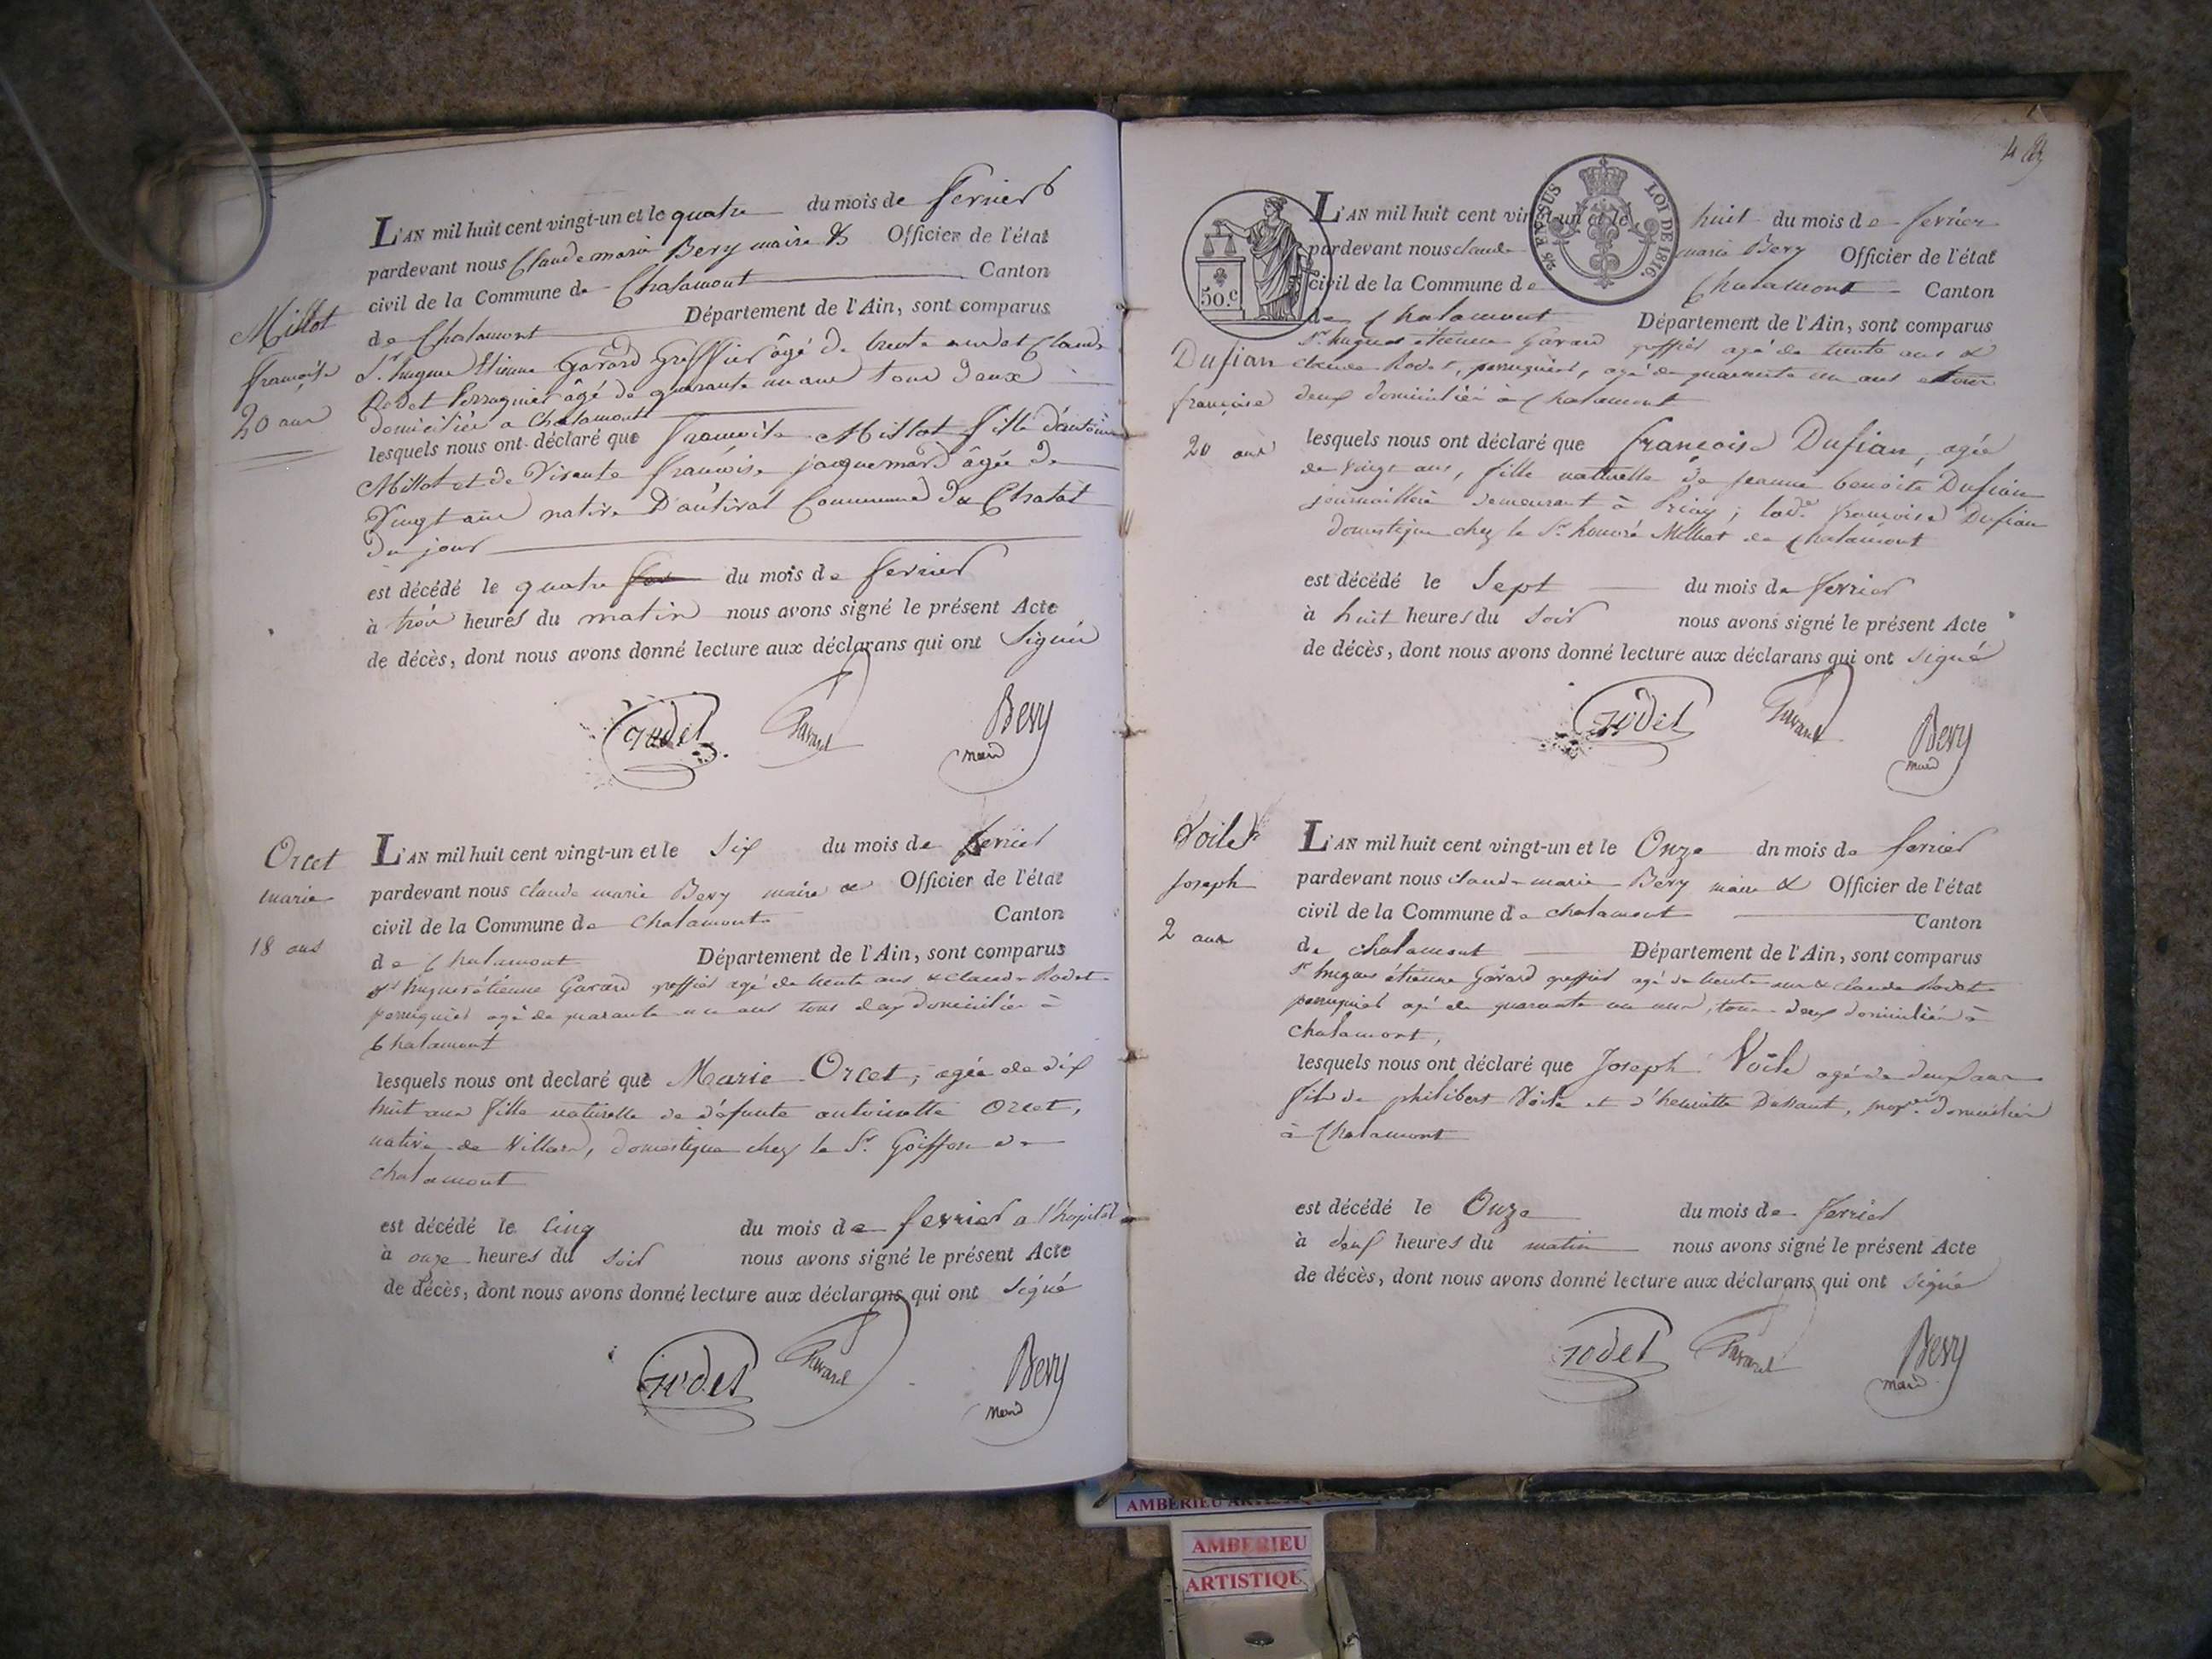 L'AN mil huit cent vingt-un et le quatre du mois de fevrier
pardevant nous Claude marie Bevy maire & Officier de l'état
civil de la Commune de Chalamont Canton
de Chalamont Département de l'Ain, sont comparus
Sr. hugue Etienne Gavard Greffier âgé de trente ans et Claude
Rodet Perruquier âgé de quarante un ans tous deux
domiciliés a Chalamont
lesquels nous ont déclaré que francoise Millot fille d'antoine
Millot et de Vivante francoise jacquemard âgée de
Vingt ans native D'autival Commune du
du jour
est décédé le quatre du mois de fevrier
à trois heures du matin nous avons signé le présent Acte
de décès, dont nous avons donné lecture aux déclarans qui ont Signés
Millot
francoise
20 ans
rodet Gavard Bevy
maire
Orcet
marie
18 ans
L'AN mil huit cent vingt-un et le Six du mois de fevrier
pardevant nous claude marie Bevy maire & Officier de l'état
civil de la Commune de Chalamont Canton
de Chalamont Département de l'Ain, sont comparus
Sr hugues étienne Gavard greffier agé de trente ans & claude Rodet
perruquier agé de quarante un ans tous deux domiciliés à
Chalamont
lesquels nous ont declaré que Marie Orcet, agée de dix
huit ans fille naturelle de défunte antoinette Orcet,
native de Villars, domestique chez le Sr. Goiffon de
chalamont
est décédé le Cinq du mois de fevrier a l'hopital
à onze heures du soir nous avons signé le présent Acte
de décès, dont nous avons donné lecture aux déclarans qui ont signé
rodet Gavard Bevy
maire
4
EN SUS LOI DE 1816.
50.c
L'AN mil huit cent vingt-un et le huit du mois de fevrier
pardevant nous claude marie Bevy Officier de l'état
civil de la Commune de Chalamont Canton
de Chalamont Département de l'Ain, sont comparus
Sr. hugues étienne Gavard greffier agé de trente ans &
claude Rodet, perruquier, agé de quarante un ans tous
deux domiciliés à Chalamont
Dufian
francoise
20 ans
lesquels nous ont déclaré que francoise Dufian, agée
de vingt ans, fille naturelle de jeanne benoite Dufian
journaillere demeurant à Priay; lade. francoise Dufian
domestique chez le Sr. honoré Milliat de Chalamont
est décédé le Sept du mois de fevrier
à huit heures du soir nous avons signé le présent Acte
de décès, dont nous avons donné lecture aux déclarans qui ont signé
rodet Gavard Bevy
maire
Voile
Joseph
2 ans
L'AN mil huit cent vingt-un et le Onze dn mois de fevrier
pardevant nous claude marie Bevy maire & Officier de l'état
civil de la Commune de chalamont Canton
de chalamont Département de l'Ain, sont comparus
Sr hugues étienne Gavard greffier agé de trente ans & claude Rodet
perruquier agé de quarante un ans, tous deux domiciliés à
chalamont,
lesquels nous ont déclaré que Joseph Voile agé de deux ans
fils de philibert Voile et d'henriette Dussaut, domiciliés
à Chalamont
est décédé le Onze du mois de fevrier
à deux heures du matin nous avons signé le présent Acte
de décès, dont nous avons donné lecture aux déclarans qui ont signé
rodet Gavard Bevy
maire
AMBERIEU ARTISTIQUE
AMBERIEU
ARTISTIQU